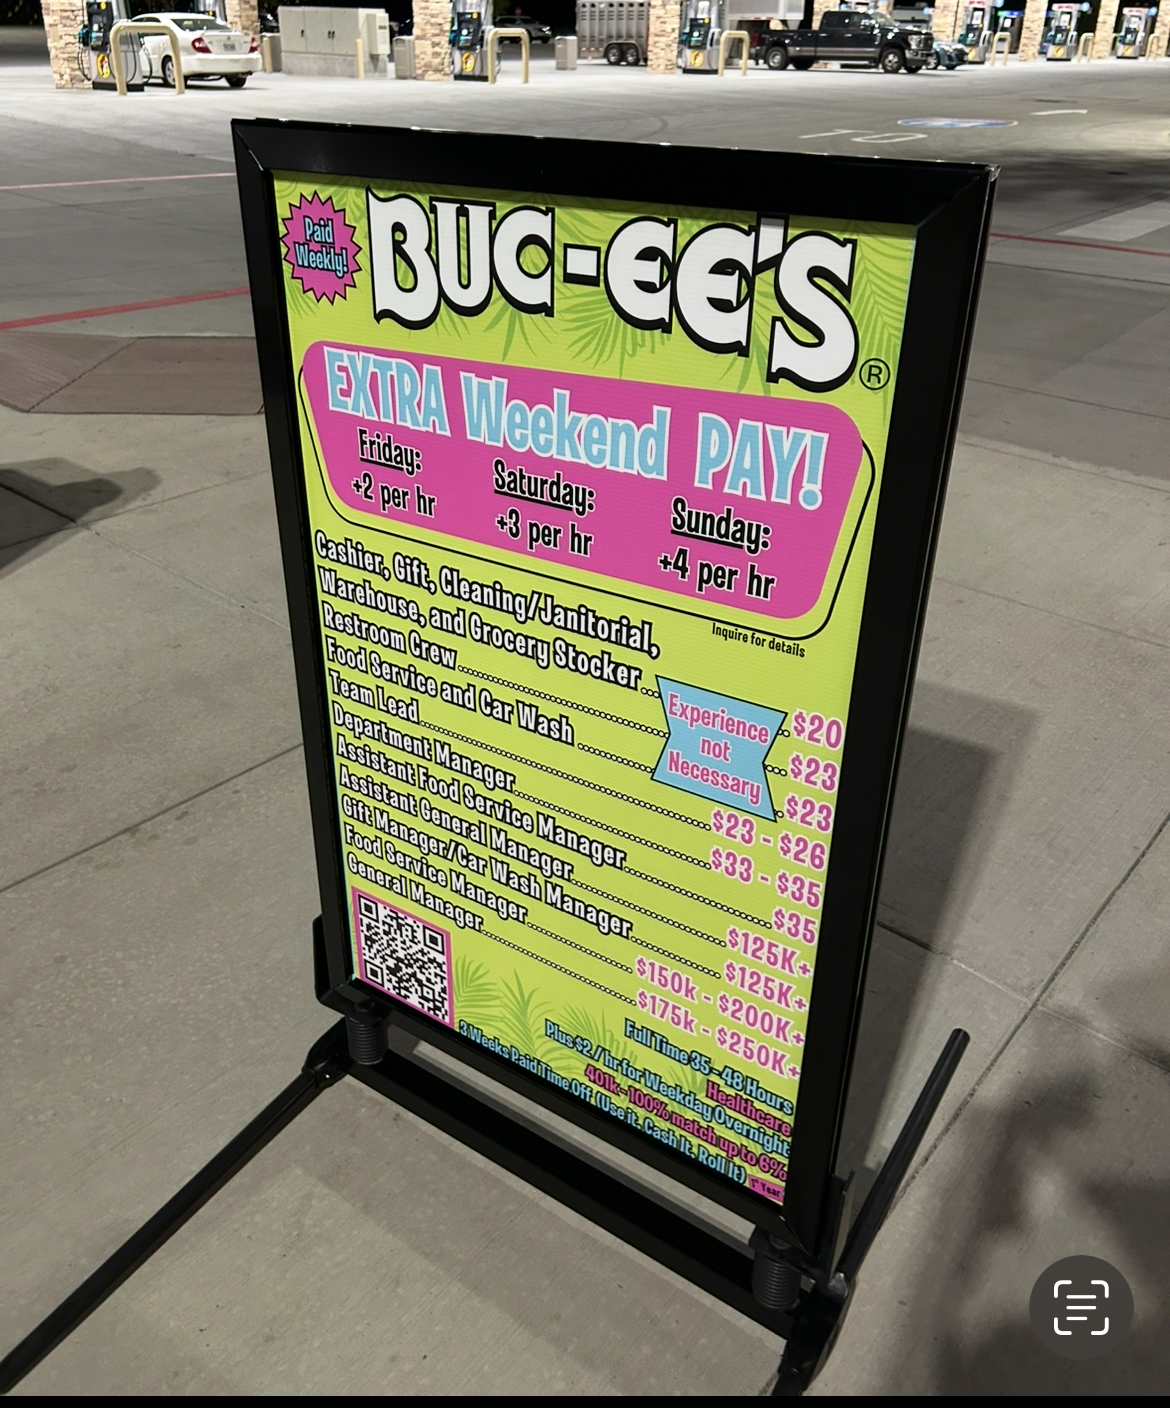 TO
Paid
Weekly!
BUC-EE'S®
EXTRA Weekend PAY!
Friday: Saturday: Sunday:
+2 per hr +3 per hr +4 per hr
Inquire for details
Cashier, Gift, Cleaning/Janitorial,
Warehouse, and Grocery Stocker $20
Restroom Crew $23
Food Service and Car Wash $23
Experience
not
Necessary
Team Lead $23 - $26
Department Manager $33 - $35
Assistant Food Service Manager $35
Assistant General Manager $125K+
Gift Manager/Car Wash Manager $125K+
Food Service Manager $150k - $200K+
General Manager $175k - $250K+
Full Time 35 - 48 Hours
Healthcare
Plus $2 / hr for Weekday Overnight
401k - 100% match up to 6%
3 Weeks Paid Time Off (Use it. Cash It. Roll It) 1st Year